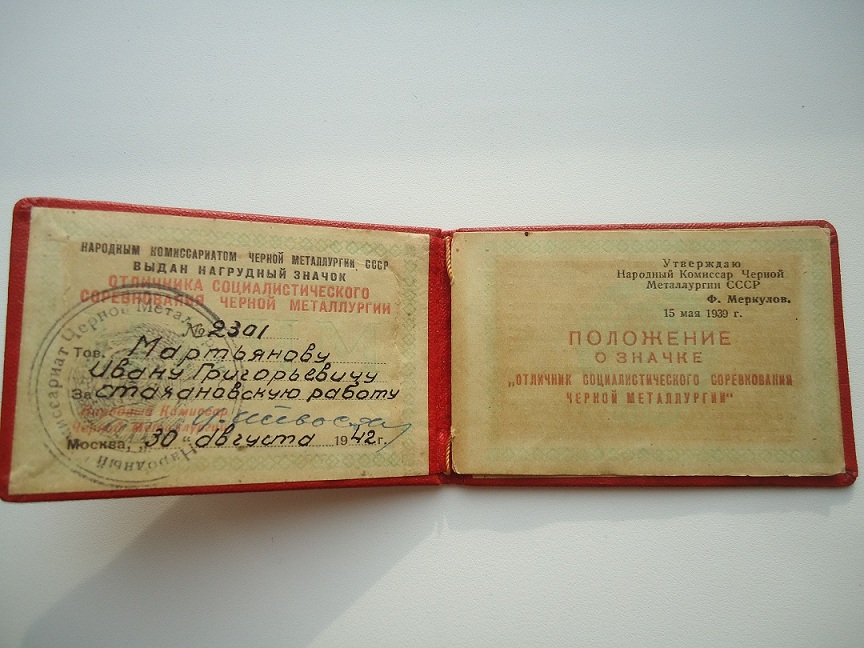 НАРОДНЫМ КОМИССАРИАТОМ ЧЕРНОЙ МЕТАЛЛУРГИИ СССР
ВЫДАН НАГРУДНЫЙ ЗНАЧОК
ОТЛИЧНИКА СОЦИАЛИСТИЧЕСКОГО
СОРЕВНОВАНИЯ ЧЕРНОЙ МЕТАЛЛУРГИИ
№ 2301
Тов. Мартьянову
Ивану Григорьевичу
За стахановскую работу
Народный Комиссар
Черной Металлургии
Москва, „30" августа 1942 г.
Народный Комиссариат Черной
Утверждаю
Народный Комиссар Черной
Металлургии СССР
Ф. Меркулов.
15 мая 1939 г.
ПОЛОЖЕНИЕ
О ЗНАЧКЕ
„ОТЛИЧНИК СОЦИАЛИСТИЧЕСКОГО СОРЕВНОВАНИЯ
ЧЕРНОЙ МЕТАЛЛУРГИИ"